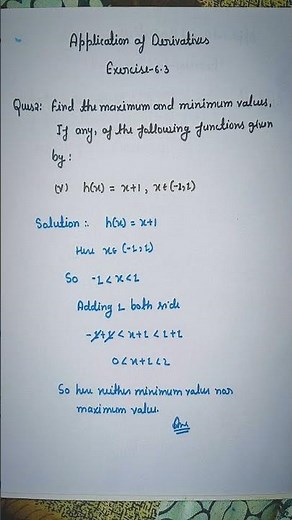 Application of Derivatives
Exercise-6.3
Ques2: Find the maximum and minimum values,
If any, of the following functions given
by:
(v) h(x) = x+1, x∈(-1,1)
Solution:. h(x) = x+1
Here x∈ (-1,1)
So -1<x<1
Adding 1 both side
-1+1<x+1<1+1
0<x+1<2
So here neither minimum value nor
maximum value.
Ans